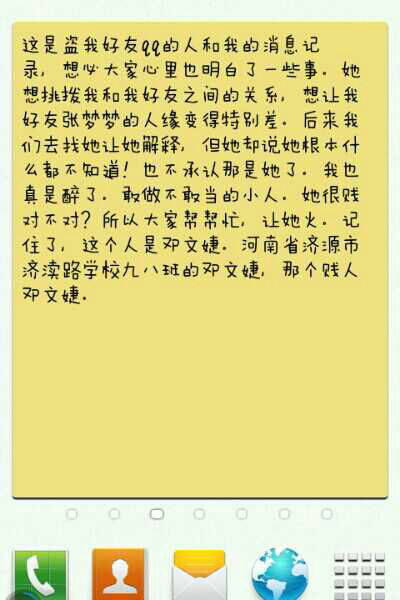 这是盗我好友qq的人和我的消息记
录，想必大家心里也明白了一些事。她
想挑拨我和我好友之间的关系，想让我
好友张梦梦的人缘变得特别差。后来我
们去找她让她解释，但她却说她根本什
么都不知道！也不承认那是她了。我也
真是醉了。敢做不敢当的小人。她很贱
对不对？所以大家帮帮忙，让她火。记
住了，这个人是邓文婕。河南省济源市
济渎路学校九八班的邓文婕，那个贱人
邓文婕.